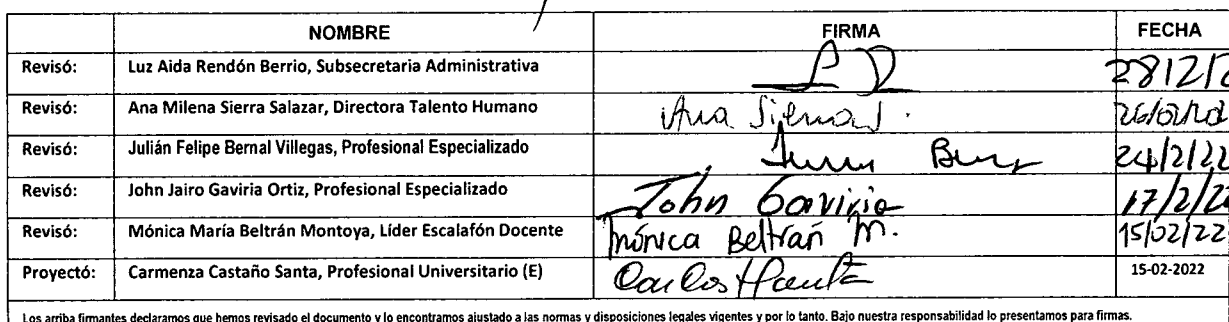 NOMBRE FIRMA FECHA
Revisó: Luz Aida Rendón Berrio, Subsecretaria Administrativa
Revisó: Ana Milena Sierra Salazar, Directora Talento Humano Ana
Revisó: Julián Felipe Bernal Villegas, Profesional Especializado 24/2/22
Revisó: John Jairo Gaviria Ortiz, Profesional Especializado John Gaviria 17/2/2
Revisó: Mónica María Beltrán Montoya, Líder Escalafón Docente Mónica Beltrán M. 15/02/22
Proyectó: Carmenza Castaño Santa, Profesional Universitario (E) 15-02-2022
Los arriba firmantes declaramos que hemos revisado el documento y lo encontramos ajustado a las normas y disposiciones legales vigentes y por lo tanto. Bajo nuestra responsabilidad lo presentamos para firmas.